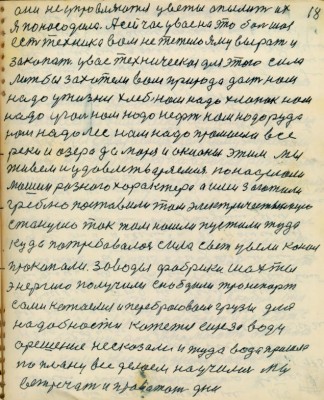 они не управляются цветы опылить их
18
я понасодила. А сейчас у вас на это большая
есть техника вам не тяжело яму вырыть и
закопать у вас техническая для этого сила
лиш бы захотели вам природа даст нам
надо у жизни хлеб нам надо хлопок нам
надо уголь нам надо нефть нам надо руда
нам надо лес нам надо промысел все
реки и озера да моря и океаны этим мы
живем и удовлетворяемся понаделали
машин разного характера а или заготовили
греблю поставили там электрическую
станцию ток там нашли пустили туда
куда потребовалася сила свет цвели канал
прокопали. Заводы фабрики шахты
энергию получили снабдили транспорт
сами катаемся и перебрасываем грузы для
надобности кажется через воду
орешение несказали и туда вода пришла
по плану все делаем научились мы
встречать и провожать дни